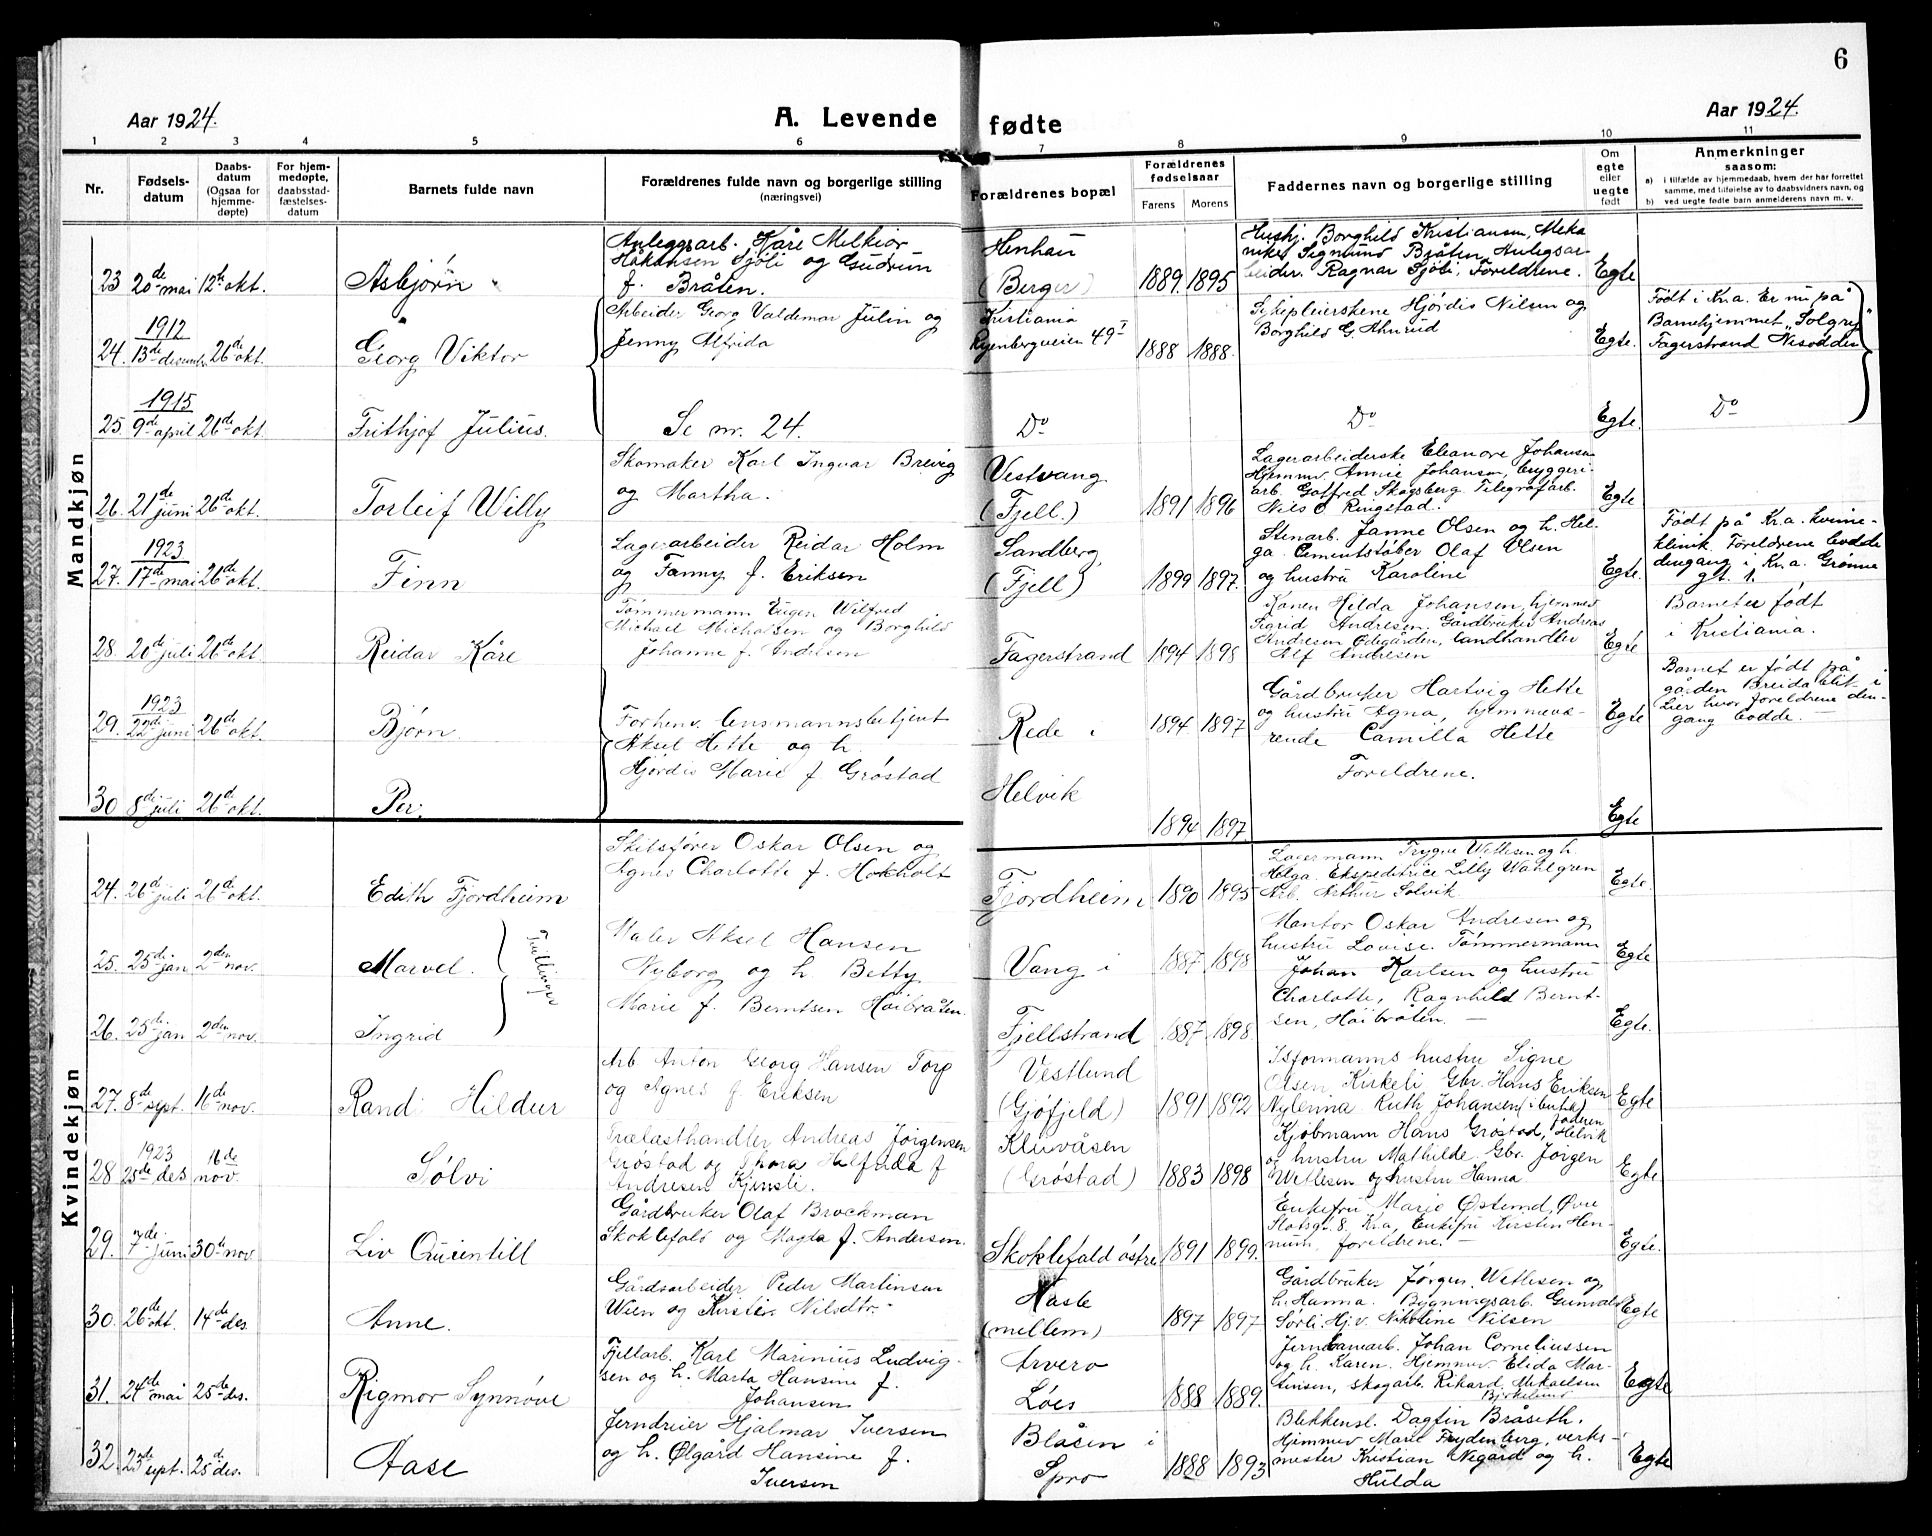 6
Aar 1924.
A. Levende
fødte
Aar 1924.
1 2 3 4 5 6 7 8 9 10 11
Nr.
Fødsels-
datum
Daabs-
datum
(Ogsaa for
hjemme-
døpte)
For hjem-
medøpte,
daabsstad-
fæstelses-
datum
Barnets fulde navn
Forældrenes fulde navn og borgerlige stilling
(næringsvei)
Forældrenes bopæl
Forældrenes
fødselsaar
Farens Morens
Faddernes navn og borgerlige stilling
Om
egte
eller
uegte
født
Anmerkninger
saasom:
a) i tilfælde av hjemmedaab, hvem der har forrettet
samme, med tilføielse av to daabsvidners navn, og
b) ved uegte fødte barn anmelderens navn m. v.
Mandkjøn
23 20de mai 12te okt.
Asbjørn
Anleggsarb. Kåre Melkior
Håkansen Sjøli og Gudrun
f. Bråten.
Henhau
(Berger)
1889. 1895
Hushj. Borghild Kristiansen, Meka-
niker Sigmund Bråten, Anlegsar-
beider Ragnar Sjøli, Foreldrene.
Egte
1912
24. 13de decemb. 26de okt.
Georg Viktor
Arbeider Georg Valdemar Julin og
Jenny Alfrida
Kristiania
Ryenbergveien 49 I
1888 1888.
Sykepleierskene Hjørdis Nilsen og
Borghild G. Ahnrud
Egte.
Født i Kr.a. Er nu på
Barnehjemmet "Solgry"
Fagerstrand Nesodden
1915
25. 9de april 26de okt
Frithjof Julius.
Se nr. 24.
Do
Do
Egte.
Do
26. 21de juni 26de okt.
Torleif Willy
Skomaker Karl Ingvar Brevig
og Martha.
Vestvang
(Fjell.)
1891 1896
Lagerarbeiderske Eleanore Johansen
Hjemmev Annie Johansen, bryggeri-
arb. Gotfred Skogsberg Telegrafarb.
Nils O Ringstad.
Egte
1923
27. 17de mai 26de okt.
Finn
Lagerarbeider Reidar Holm
og Fanny f. Eriksen
Sandberg,
(Fjell)
1899 1897.
Stenarb. Janne Olsen og h. Hel-
ga. Cementstøber Olaf Olsen
og hustru Karoline
Egte.
Født på Kr.a. kvinne-
klinik. Foreldrene bodde
dengang i Kr.a. Grønne
gt. 1.
28. 20de juli 26de okt
Reidar Kåre
Tømmermann Eugen Wilfred
Michael Michalsen og Borghild
Johanne f. Andresen
Fagerstrand
1894 1898
Konen Hilda Johansen, hjemmev
Sigrid Andresen, Gårdbruker Andreas
Andresen Ødegården, landhandler
Alf Andresen
Egte
Barnet er født
i Kristiania.
1923
29. 22de juni 26de okt.
Bjørn.
Forhenv. lensmannsbetjent
Aksel Hette og h.
Hjørdis Marie f Grøstad
Rede i
1894 1897
Gårdbruker Hartvig Hette
og hustru Agna, hjemmevæ-
rende Camilla Hette
Egte
Barnet er født på
gården Breidablik i
Lier hvor foreldrene den-
gang bodde.
30 8de juli 26de okt.
Per.
Helvik
1894 1897.
Foreldrene.
Egte
Kvindekjøn
24. 26de juli 26de okt.
Edith Fjordheim
Skibsfører Oskar Olsen og
Agnes Charlotte f. Hokholt
Fjordheim
1890 1895
Lagermann Trygve Wetlesen og h.
Helga. Ekspeditrice Lilly Wahlgren
Arb. Arthur Solvik.
Egte.
25. 25de jan 2den nov.
Marvel.
Tvillinger
Maler Aksel Hansen
Nyborg og h. Betty
Marie f. Berntsen Høibråten.
Vang i
1887 1898
Kantor Oskar Andresen og
hustru Lovise. Tømmermann
Johan Karlsen og hustru
Charlotte, Ragnhild Bernt-
sen, Høibråten. —
Egte
26. 25de jan 2den nov.
Ingrid
Fjellstrand
1887 1898.
Egte.
27. 8de sept. 16de nov.
Randi Hildur
Arb Anton Georg Hansen Torp
og Agnes f. Eriksen
Vestlund
(Gjøfjeld)
1891 1892
Isformanns hustru Signe
Olsen, Kirkeli Gbr. Hans Eriksen
Nylenna Ruth Johansen (i butik)
Faderen
Egte
1923
28 25de des 16de nov.
Sølvi
Trælasthandler Andreas Jørgensen
Grøstad og Thora Halfrida f
Andresen Kjensli.
Kluvåsen
(Grøstad)
1883 1898
Kjøbmann Hans Grøstad, Helvik
og hustru Mathilde. Gbr. Jørgen
Wetlesen og hustru Hanna
Egte
29. 7de juni 30te nov
Liv Quientill
Gårdbruker Olaf Brockman
Skoklefald og Magta f. Andersen.
Skoklefald østre
1891 1899.
Enkefru Marie Østemd, Øvre
Slotsgt. 8. Kr.a, Enkefru Kirsten Hen-
num, foreldrene. —
Egte.
30. 26de okt. 14de des.
Anne.
Gårdsarbeider Peder Martinsen
Wien og Kirsti Nilsdtr.
Hasle
(mellem)
1897 1897
Gårdbruker Jørgen Wetlesen og
h. Hanna. Bygningsarb. Gunvald
Sørli. Hj.v. Nikoline Nilsen
Egte
31. 24de mai 25de des.
Rigmor Synnøve
Fjellarb. Karl Marinius Ludvig-
sen og h. Marta Hansine f.
Johansen
Arvero
Løes
1888 1889.
Jernbanearb. Johan Corneliussen
og h. Karen. Hjemmev. Elida Mar-
tinsen, skogarb. Rikard Mikaelsen
Bjrkelund
Egte
32. 23de sept. 25de des.
Aase
Jerndreier Hjalmar Iversen
og h. Ølgård Hansine f.
Iversen
Blåsen i
Spro
1888 1893
Blikkensl. Dagfin Bråseth.
Hjemmev Marie Frydenberg, verks-
mester Kristian Negård og h.
Hulda
Egte